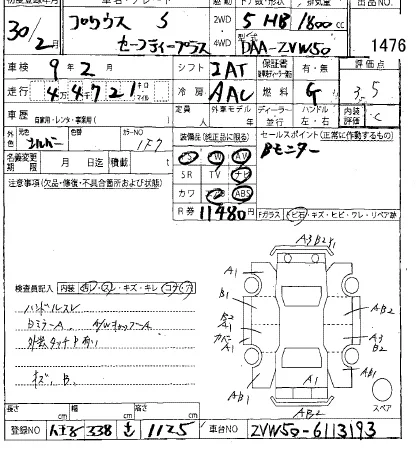 初度登録年月 車名・グレード ドア数/形状 排気量 出品NO
30/2月 プリウス S セーフティープラス 2WD 4WD 5 HB 1800cc
型式 DAA-ZVW50 1476
車検 9年2月 シフト IAT 保証書 有・無 評価点 3.5
走行 4万4千721 キロ マイル 冷房 AAC 燃料 G 内装評価 C
車歴 自家用・レンタ・事業用( ) 定員 人 外車モデル 年 ディーラー 並行 ハンドル 左・右
外色 元色 シルバー カラーNO 1F7 装備品(純正品に限る) セールスポイント(正常に作動するもの)
PS PW AV Bモニター
名義変更期限 月 日迄 積載 t SR TV ナビ
注意事項(欠品・修復・不具合箇所および状態) カワ エアB ABS
R券 11480円 Fガラス トビ石・キズ・ヒビ・ワレ・リペア跡
A3 B2 Y1
A1 A1
検査員記入 内装 汚レ・スレ・キズ・キレ・コゲ・穴
B1 AB2
ハンドルスレ
A1 A3
B2
外装タッチ
キズ、B.
AB1 A1 AB1
AB2 スペア
長さ cm 幅 cm 高さ cm
登録NO 338 1125 車台NO ZVW50-6113193